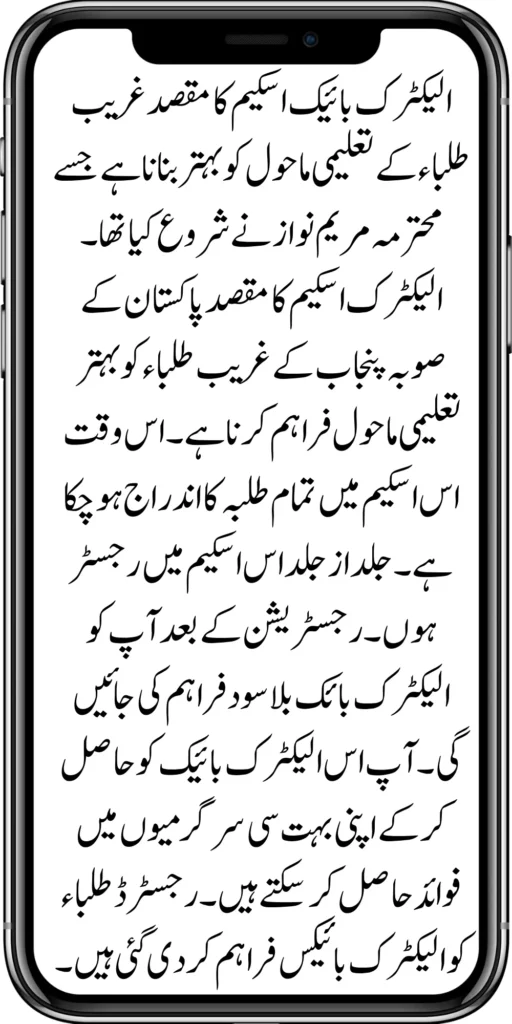 الیکٹرک بائیک اسکیم کا مقصد غریب
طلباء کے تعلیمی ماحول کو بہتر بنانا ہے جسے
محترمہ مریم نواز نے شروع کیا تھا۔
الیکٹرک اسکیم کا مقصد پاکستان کے
صوبہ پنجاب کے غریب طلباء کو بہتر
تعلیمی ماحول فراہم کرنا ہے۔ اس وقت
اس اسکیم میں تمام طلبہ کا اندراج ہو چکا
ہے۔ جلد از جلد اس اسکیم میں رجسٹر
ہوں۔ رجسٹریشن کے بعد آپ کو
الیکٹرک بائک بلا سود فراہم کی جائیں
گی۔ آپ اس الیکٹرک بائیک کو حاصل
کر کے اپنی بہت سی سرگرمیوں میں
فوائد حاصل کر سکتے ہیں۔ رجسٹرڈ طلباء
کو الیکٹرک بائیکس فراہم کر دی گئی ہیں۔